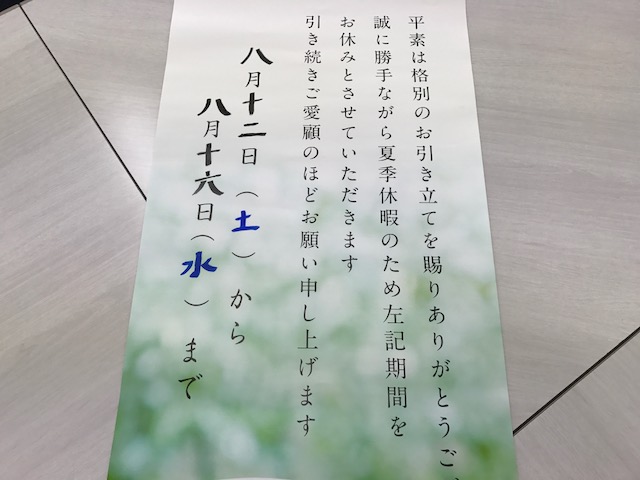 平素は格別のお引き立てを賜りありがとうご
誠に勝手ながら夏季休暇のため左記期間を
お休みとさせていただきます
引き続きご愛顧のほどお願い申し上げます
八月十二日（土）から
八月十六日（水）まで